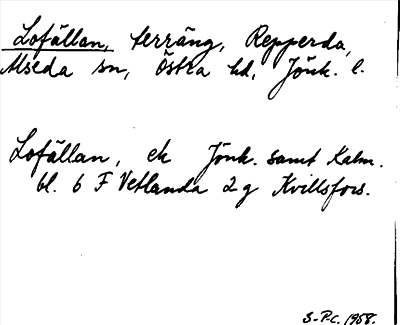 Lofällan, terräng, Repperda,
Alseda sn, Östra hd, Jönk. l.
Lofällan, ek Jönk. samt Kalm.
bl. 6 F Vetlanda 2 g Kvillsfors.
S-P.c. 1958.